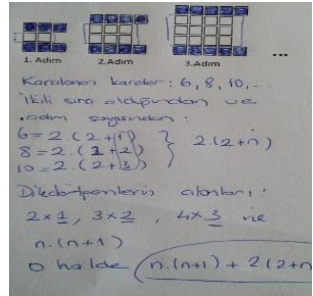 1. Adım 2.Adım 3.Adım ...
Karalanan kareler : 6, 8, 10, ...
ikili sıra olduğundan ve
adım sayısından :
6 = 2. (2+1)
8 = 2. (2+2) } 2.(2+n)
10 = 2. (2+3)
Dikdörtgenlerin alanları :
2x1, 3x2, 4x3 ise
n.(n+1)
o halde n.(n+1) + 2.(2+n